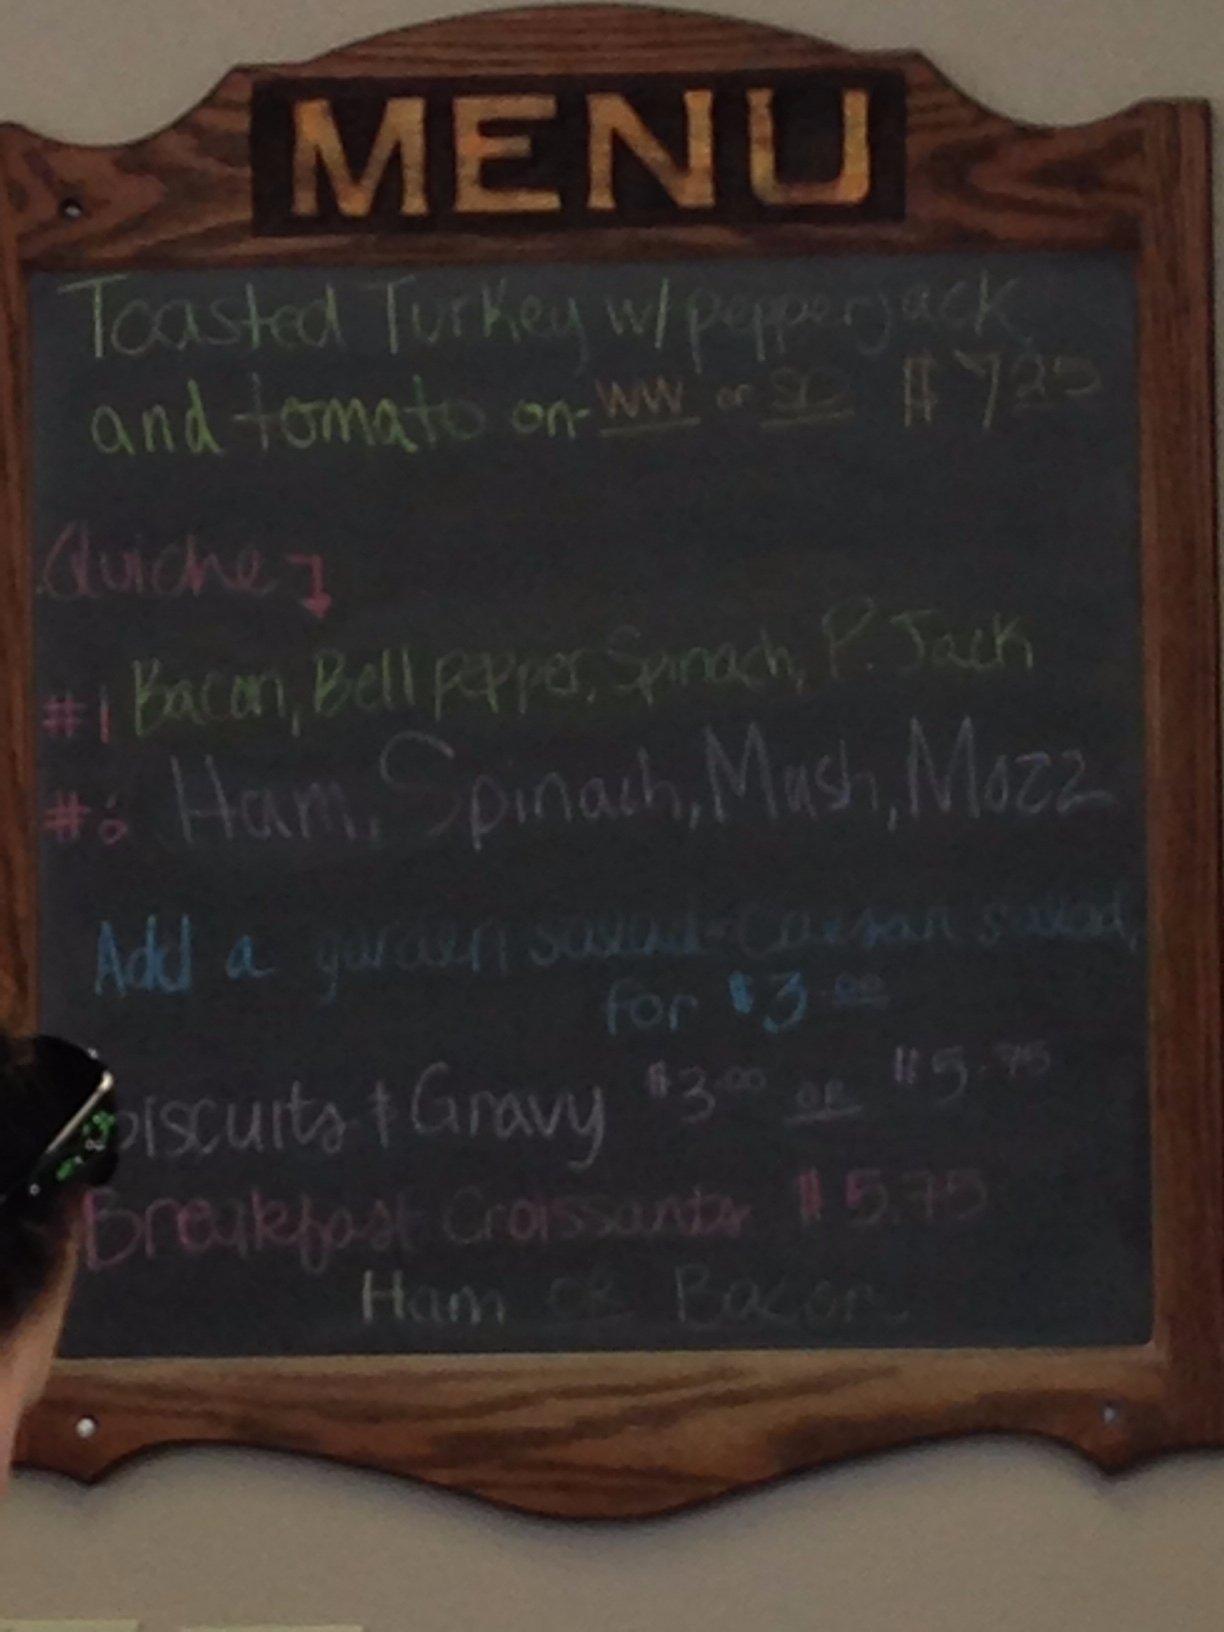 MENU
Toasted Turkey w/ pepperjack
and tomato on WW or SD $7.25
Quiche
#1 Bacon, Bell pepper, Spinach, P. Jack
Ham, Spinach, Mush, Mozz
Add a garden salad - Caesar salad,
for $3.00
Biscuits & Gravy $3.00 or $5.75
Breakfast Croissants $5.75
Ham or Bacon